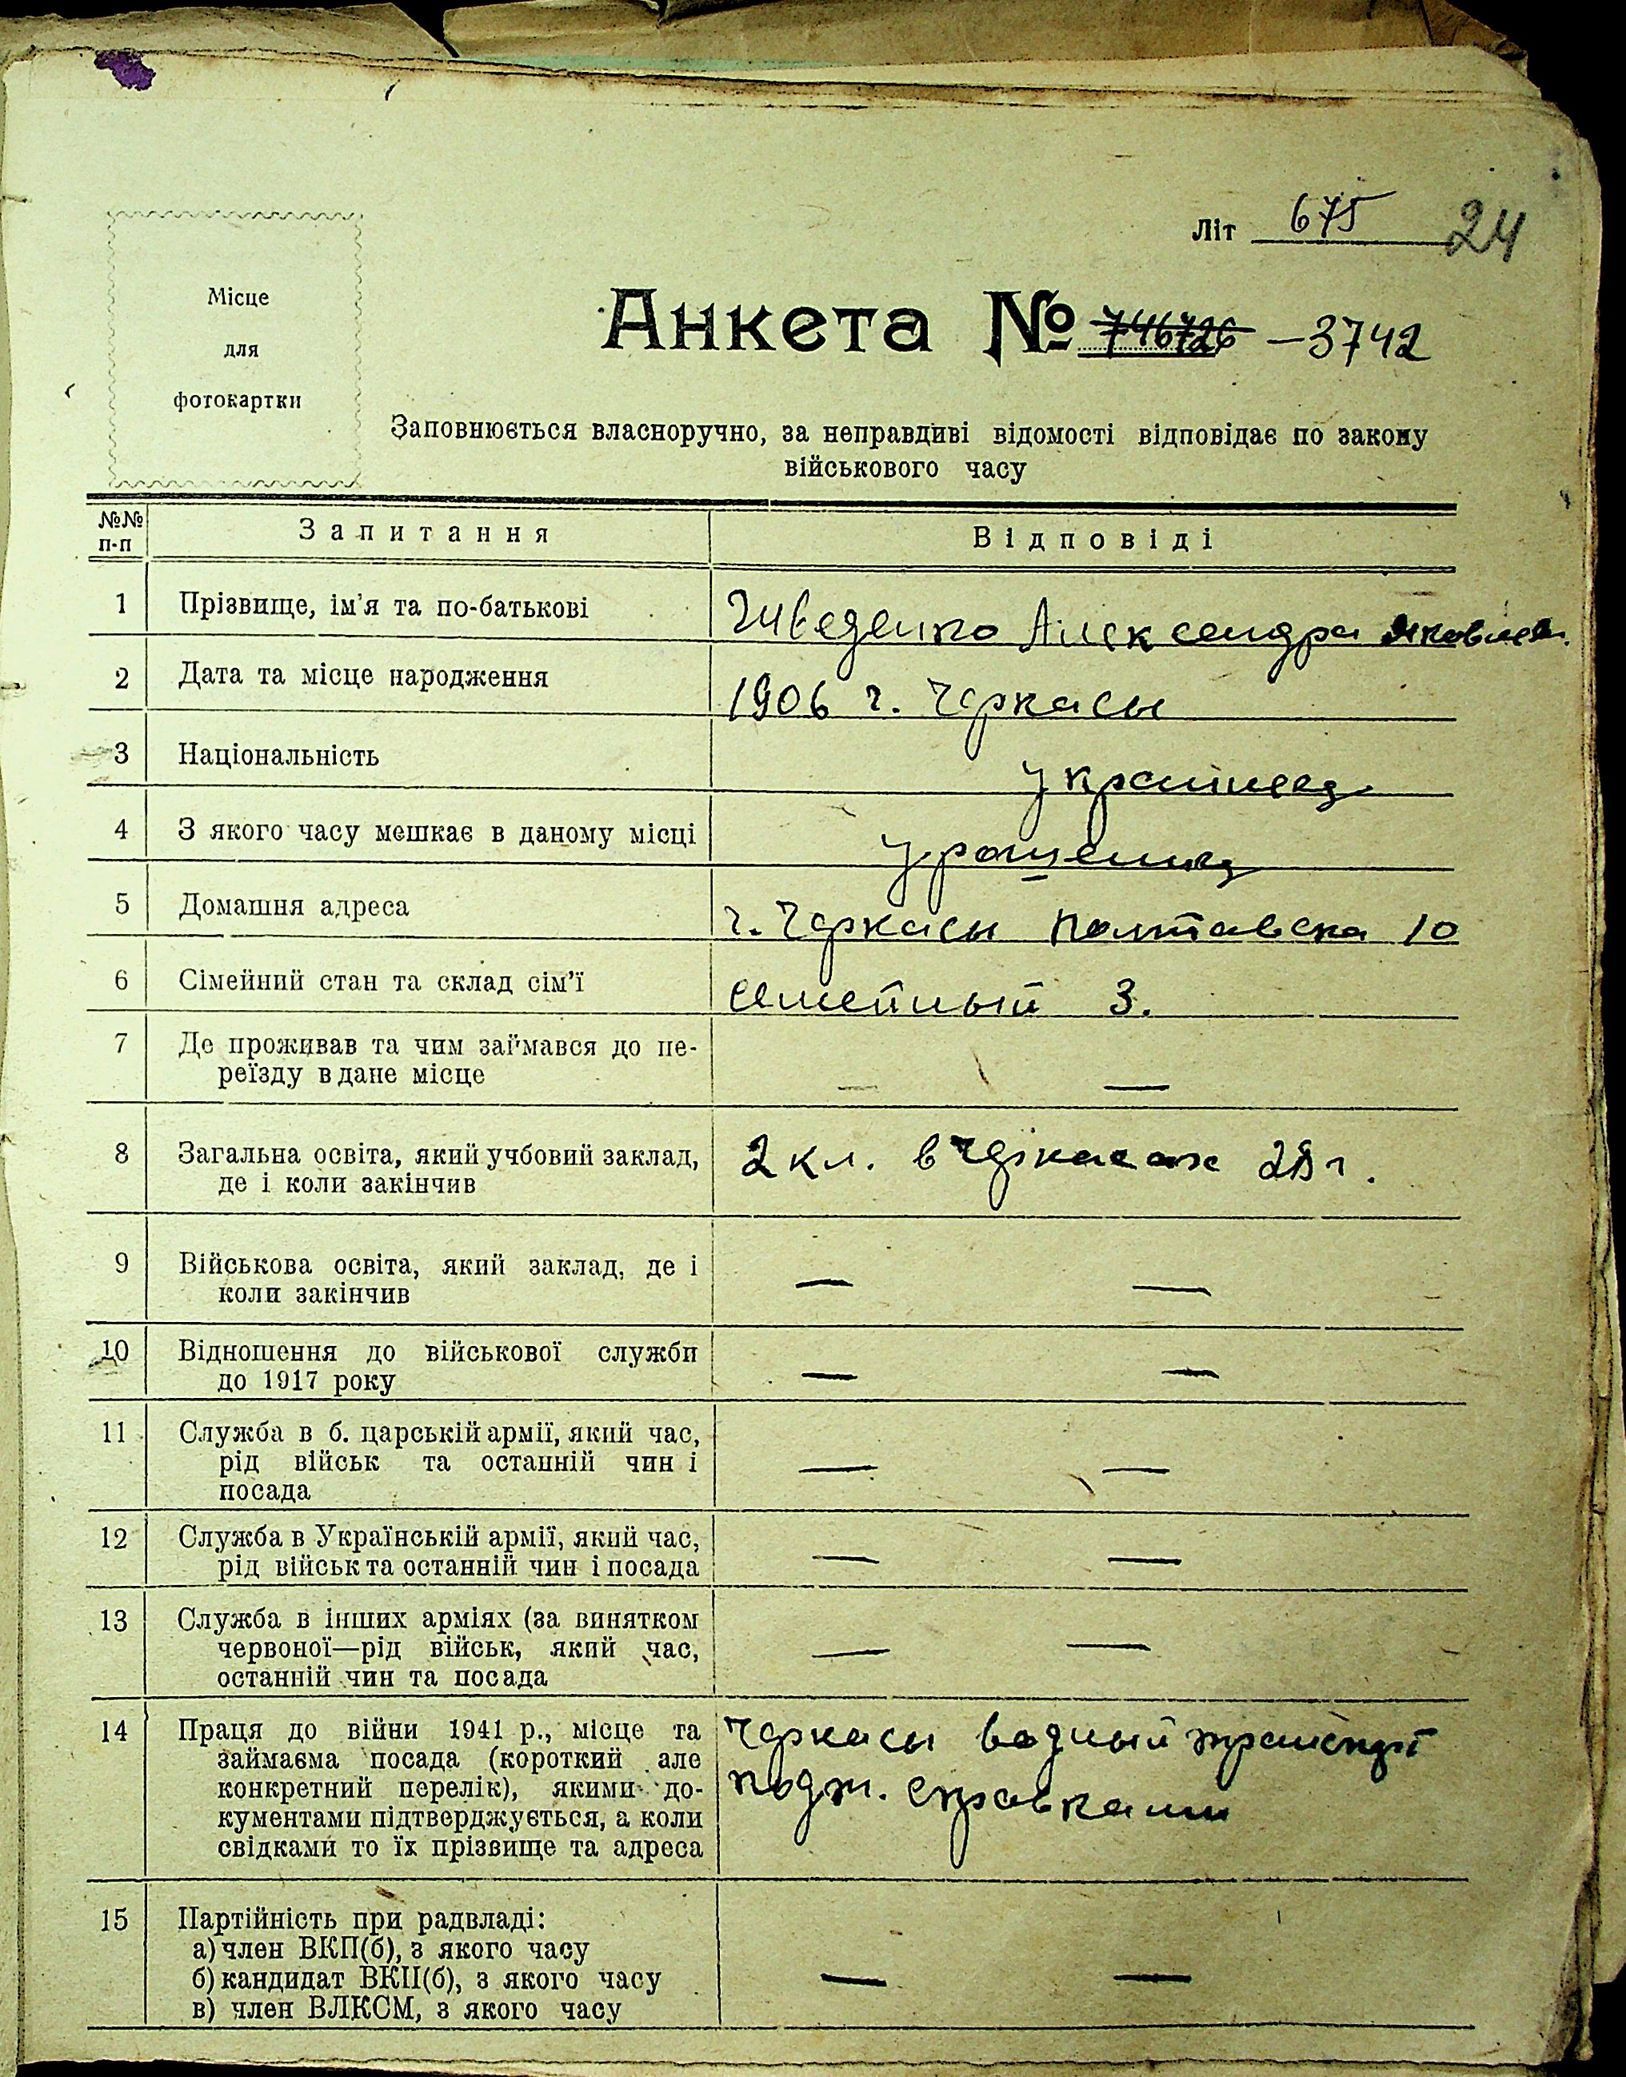 Літ 675 24
Місце
для
фотокартки
Анкета № 746726 —3742
Заповнюється власноручно, за неправдиві відомості відповідає по закону
військового часу
№№ п-п Запитання Відповіді
1 Прізвище, ім'я та по-батькові Шведенко Александра Яковлев.
2 Дата та місце народження 1906 г. Черкасы
3 Національність
4 З якого часу мешкає в даному місці
5 Домашня адреса г. Черкасы Полтавска 10
6 Сімейний стан та склад сім'ї семейный 3.
7 Де проживав та чим займався до пе-
реїзду в дане місце — —
8 Загальна освіта, який учбовий заклад, 2 кл. в Черкасах г.
де і коли закінчив
9 Військова освіта, який заклад, де і
коли закінчив — —
10 Відношення до військової служби
до 1917 року — —
11 Служба в б. царській армії, який час,
рід військ та останній чин і — —
посада
12 Служба в Українській армії, який час,
рід військ та останній чин і посада — —
13 Служба в інших арміях (за винятком
червоної—рід військ, який час, — —
останній чин та посада
14 Праця до війни 1941 р., місце та Черкасы водный транспорт
займаєма посада (короткий але
конкретний перелік), якими до- подт. справками
кументами підтверджується, а коли
свідками то їх прізвище та адреса
15 Партійність при радвладі:
а) член ВКП(б), з якого часу
б) кандидат ВКП(б), з якого часу — —
в) член ВЛКСМ, з якого часу